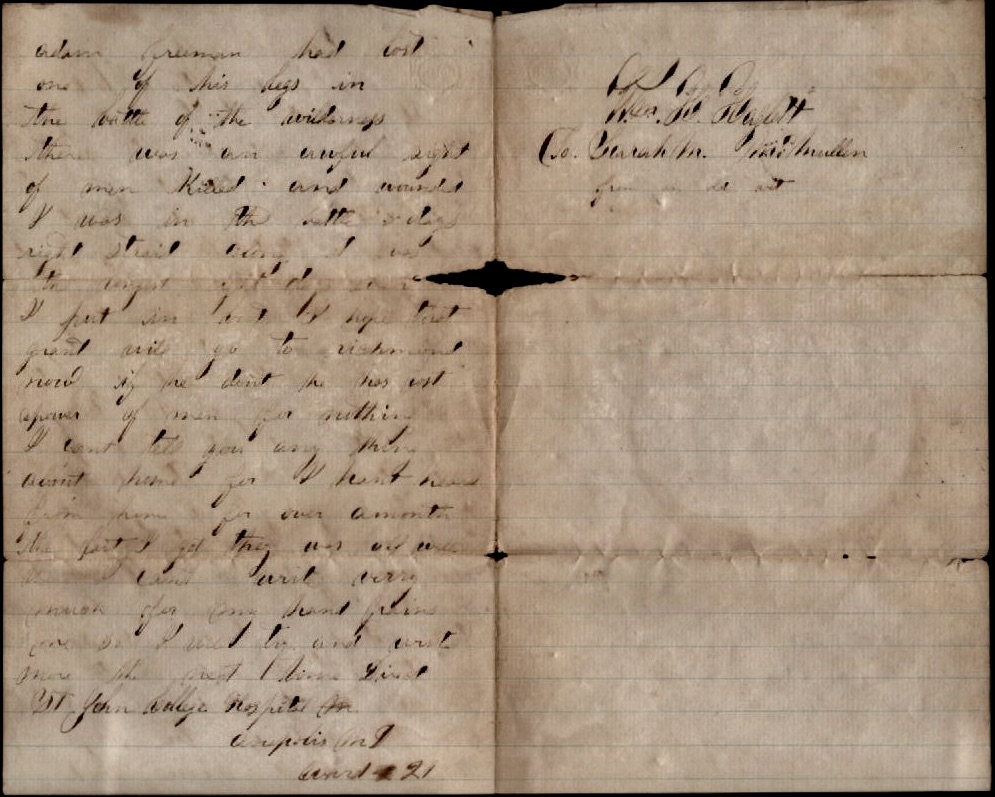 adam Freeman had lost
one of his legs in
the battle of the wilderness
there was an awful sight
of men Killed and wounded
I was in the battle 8 days
right strait along it was
the longest days ever
I put in but I hope that
grant will go to richmond
now if he dont he has lost
apower of men for nothing
I cant tell you any thing
about home for I hant heard
from home for over amonth
the last I got they was all well
I cant writ very
much for my hand pains
me so I will try and write
more the next time Direct
St John Colleje Hospital An
anapolis Md
ward 21
Wm. H.
To. Sarah M. McMullen
from an old